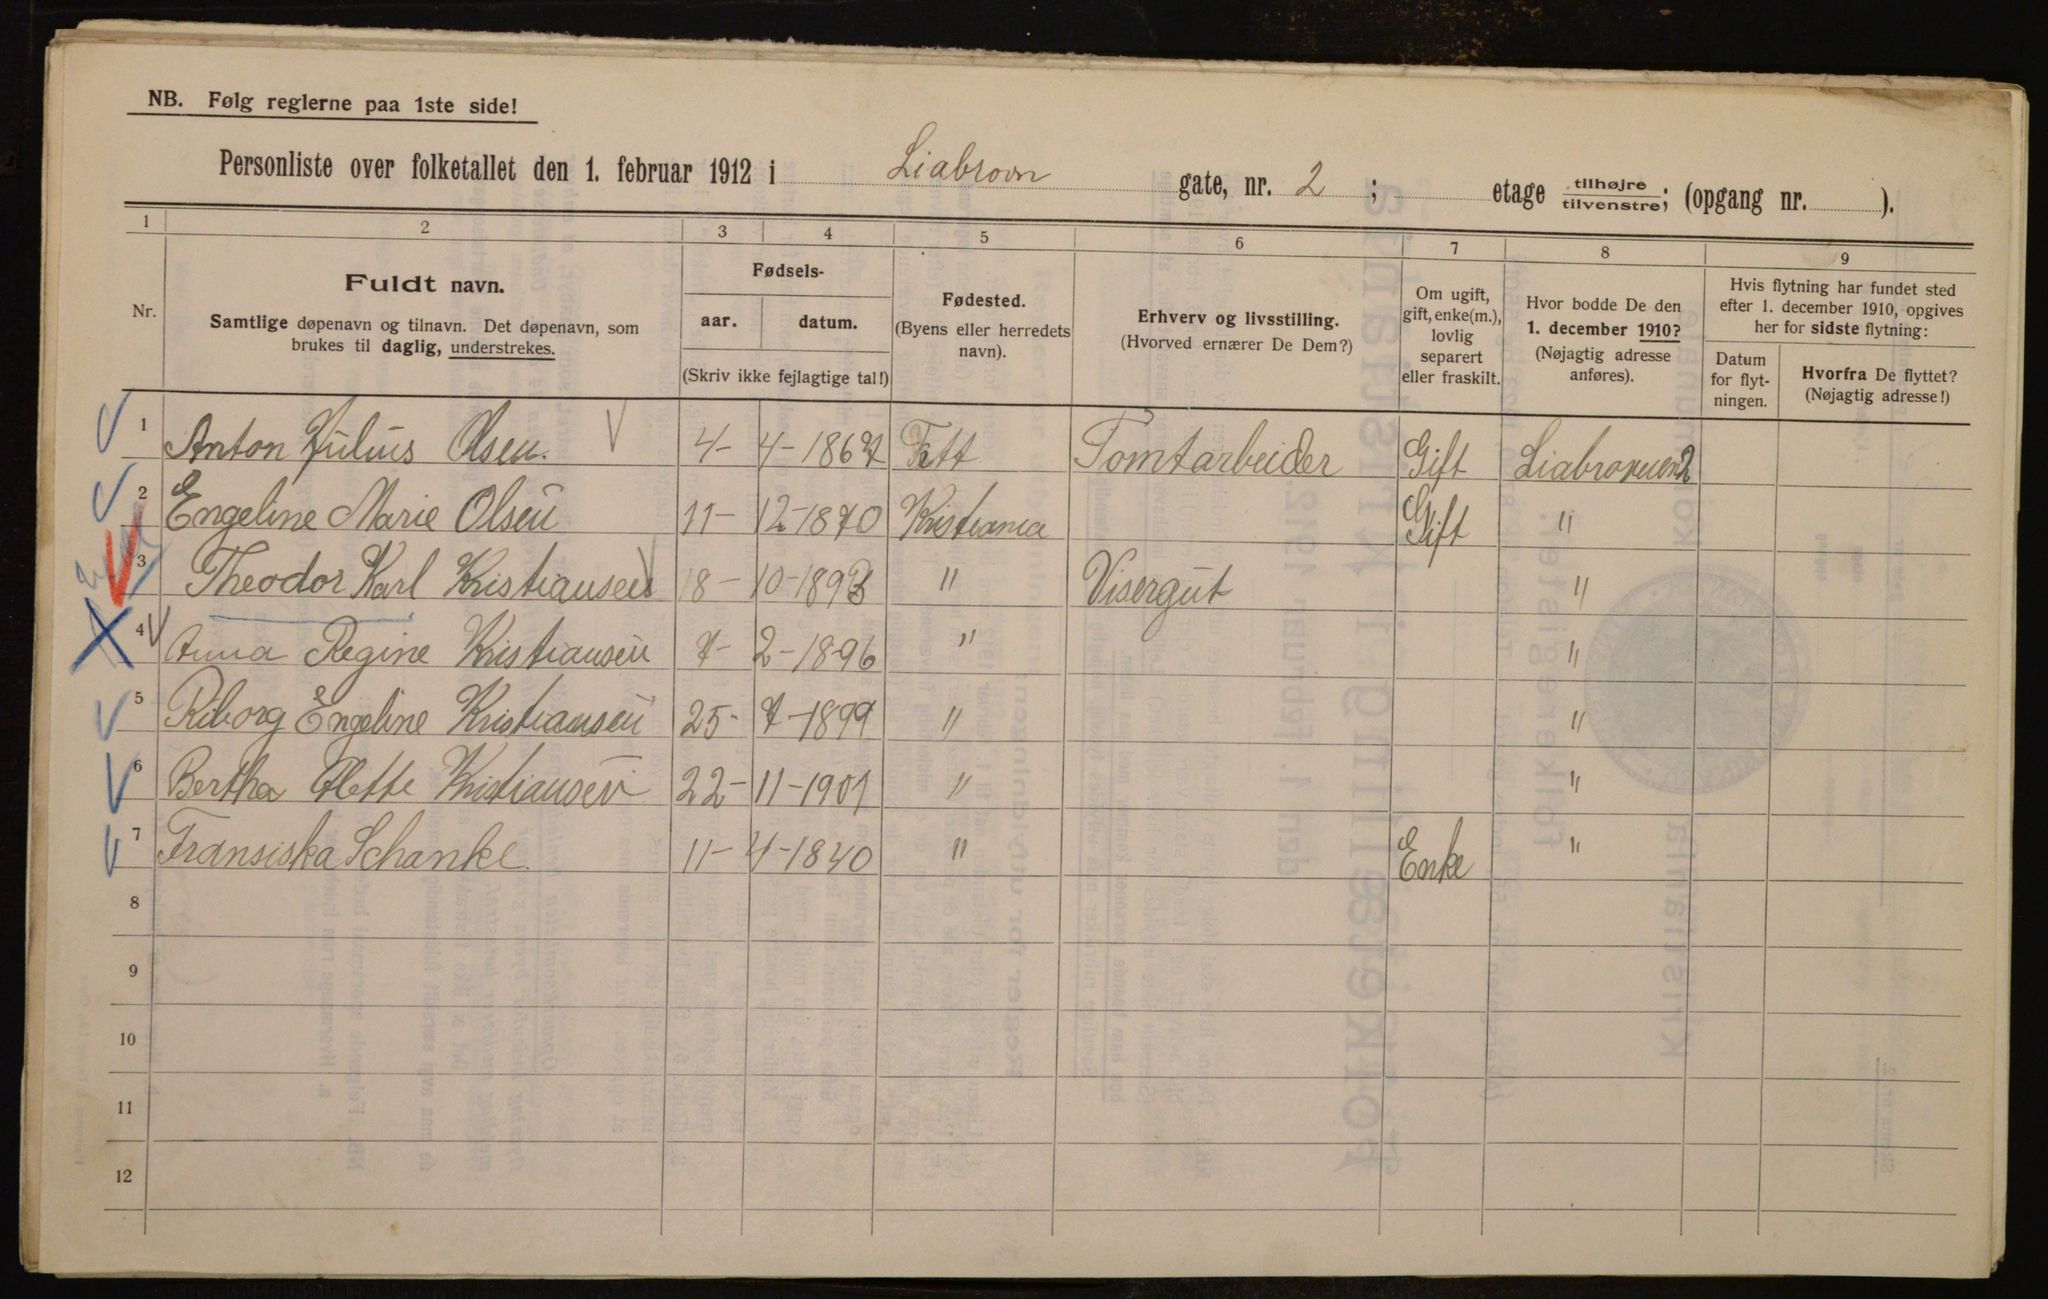 NB. Følg reglerne paa 1ste side!
Personliste over folketallet den 1. februar 1912 i Liabrovn gate, nr. 2 ; etage tilhøjre/tilvenstre; (opgang nr. ).
1 2 3 4 5 6 7 8 9
Nr.
Fuldt navn.
Samtlige døpenavn og tilnavn. Det døpenavn, som
brukes til daglig, understrekes.
Fødsels-
aar. datum.
(Skriv ikke fejlagtige tal!)
Fødested.
(Byens eller herredets
navn).
Erhverv og livsstilling.
(Hvorved ernærer De Dem?)
Om ugift,
gift, enke(m.),
lovlig
separert
eller fraskilt.
Hvor bodde De den
1. december 1910?
(Nøjagtig adresse
anføres).
Hvis flytning har fundet sted
efter 1. december 1910, opgives
her for sidste flytning:
Datum
for flyt-
ningen.
Hvorfra De flyttet?
(Nøjagtig adresse!)
1 Anton Julius Olsen. 4- 4-1867 Fett Tomtarbeider Gift Liabroveien 2
2 Engeline Marie Olsen 11- 12-1870 Kristiania Gift "
3 Theodor Karl Kristiansen 18- 10-1893 " Visergut "
4 Anna Regine Kristiansen 7- 2-1896 " "
5 Riborg Engeline Kristiansen 25- 7-1899 " "
6 Bertha Olette Kristiansen 22- 11-1901 " "
7 Fransiska Schanke 11- 4-1840 " Enke "
8
9
10
11
12